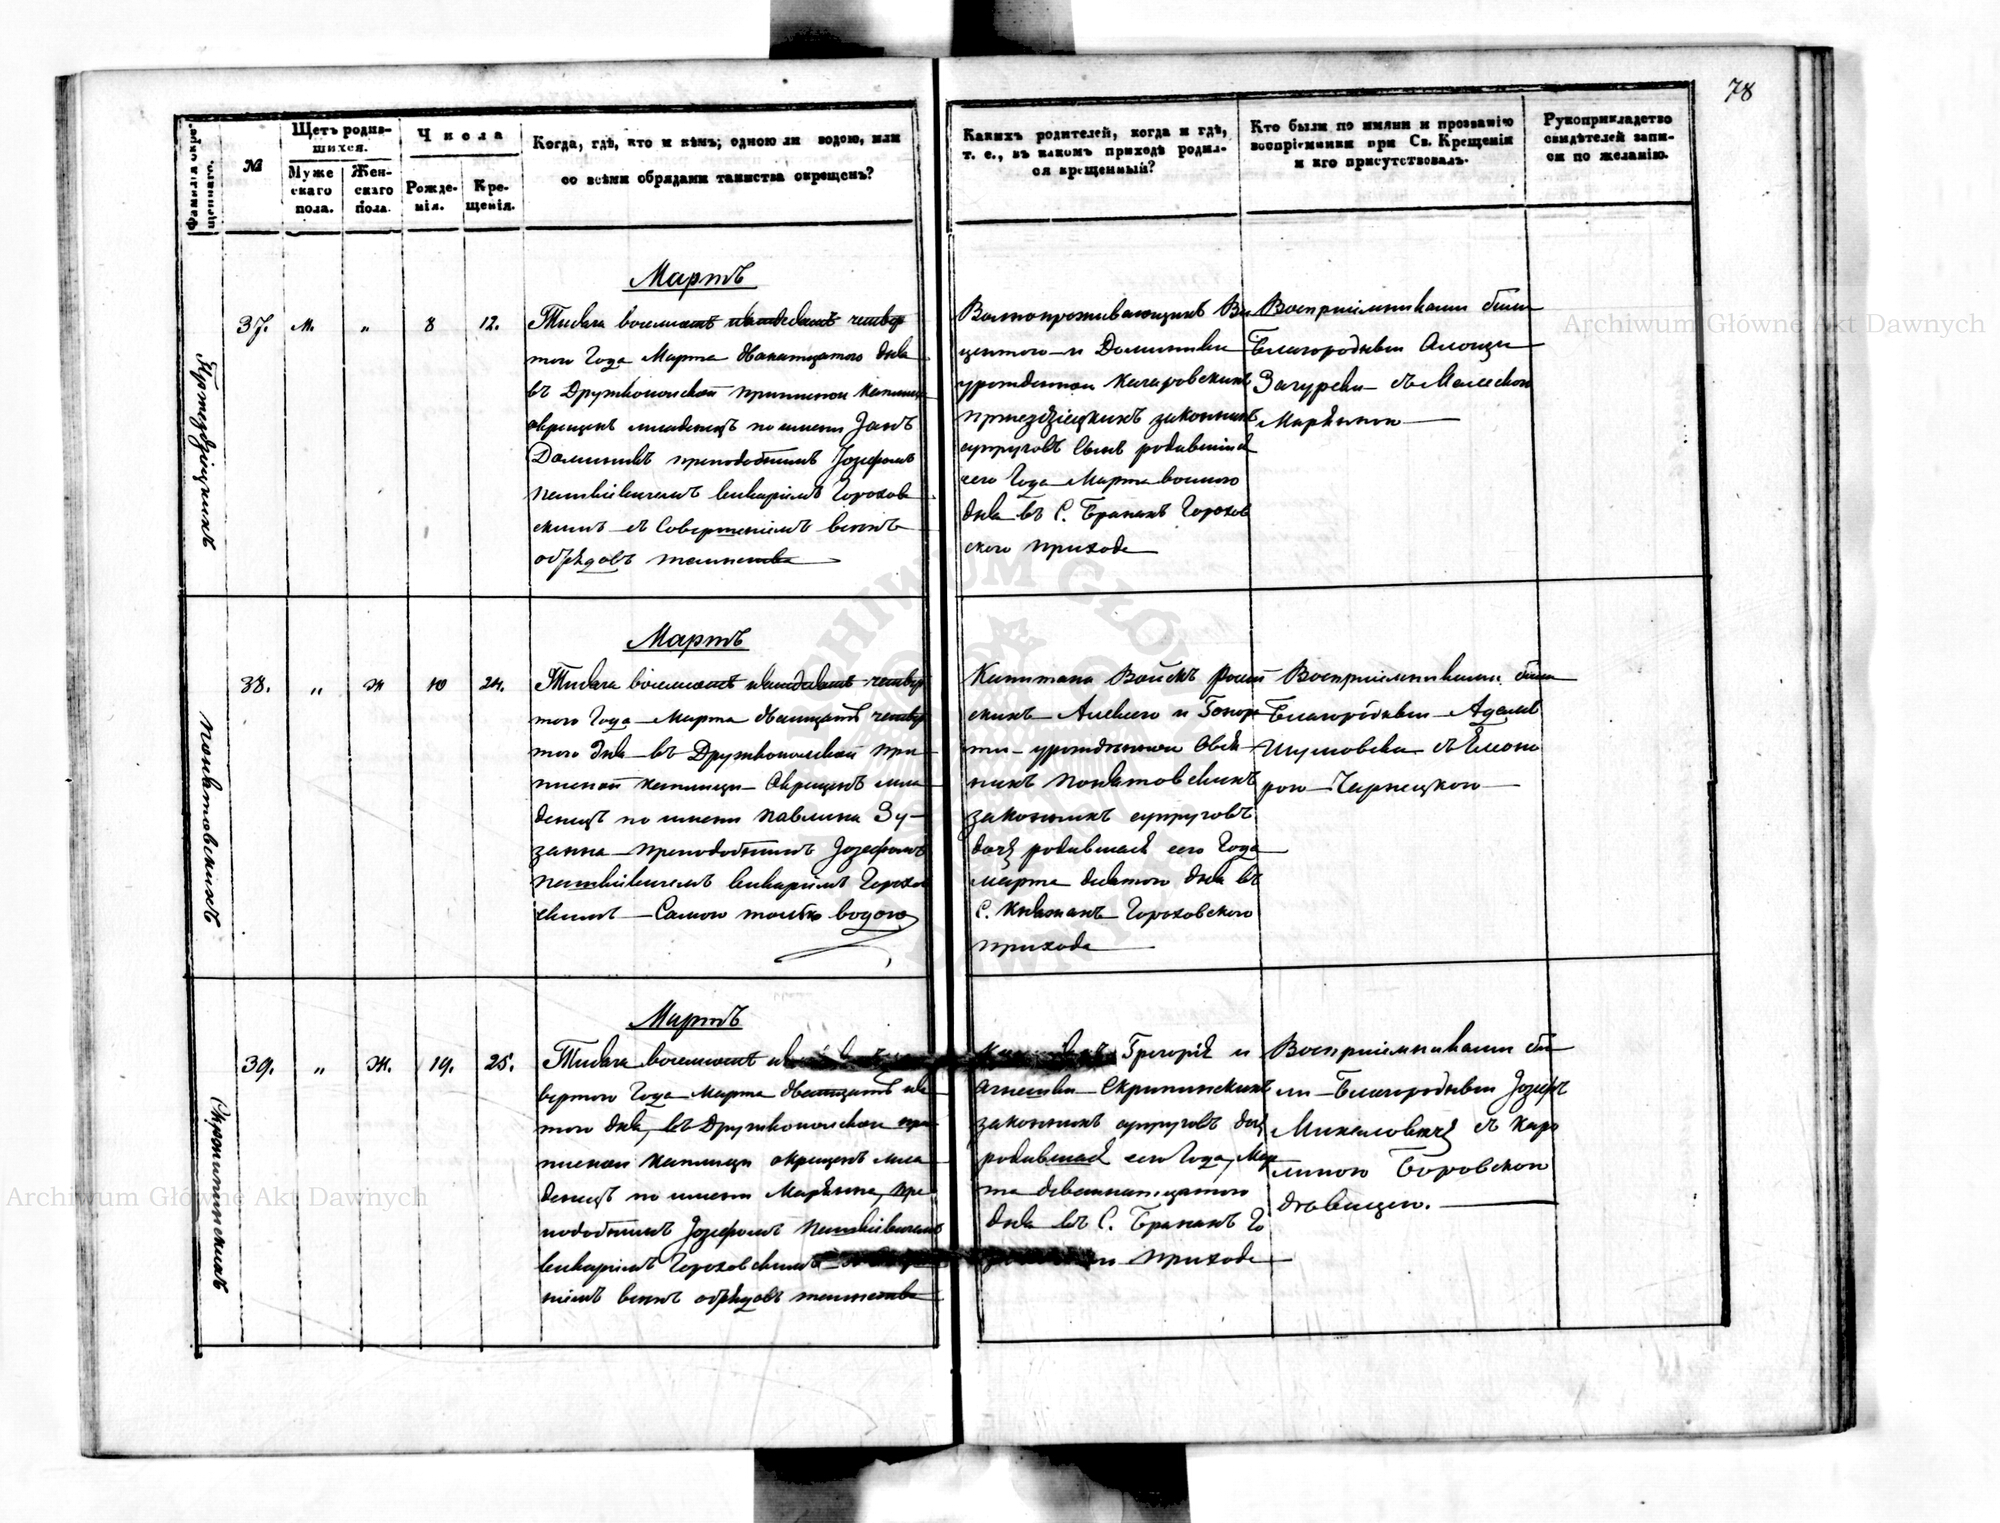 78
Фамилія окре-
стившихся.
№
Щетъ родив-
шихся.
Муже
скаго
пола.
Жен-
скаго
пола.
Числа
Рожде-
нія.
Кре-
щенія.
Когда, гдѣ, кто и кѣмъ; одною ли водою, или
со всѣми обрядами таинства окрещенъ?
Какихъ родителей, когда и гдѣ,
т. е., въ какомъ приходѣ родил-
ся крещенный?
Кто были по имяни и прозванію
воспріемники при Св. Крещеніи
и кто присутствовалъ.
Рукоприкладство
свидѣтелей запи-
си по желанію.
37. м. „ 8 12.
Мартъ
Тисяча восемсотъ пятдесятъ четвер
того Года Марта дванатцатого дня
въ Дружкопольской приписной каплици
окрещенъ младенецъ по имени Янъ
Доминикъ преподобнымъ Іозефомъ
викаріемъ Горохов
скимъ съ Совершеніемъ всѣхъ
обрядовъ таинства
Волнопроживающихъ Ви
центого и Доминики
урожденной
законныхъ
супруговъ Сынъ родившійся
сего Года Марта восмого
дня въ С. Бранахъ Горохов
ского приходе
Воспріемниками были
Благородныи Алоизи
Загурски съ
Маріянною
38. „ ж 10 24.
Понятовскихъ
Мартъ
Тисяча восемсотъ пятдесятъ четвер
того Года Марта двацатъ четвер
того дня въ Дружкопольской при
писной каплици Окрещенъ мла
денецъ по имени Павлина Зу-
занна преподобнымъ Іозефомъ
викаріемъ Горохов
скимъ Самою толко водою
Капитана Войскъ россій
скихъ и Гонора
ты урожденной
Понятовскихъ
законныхъ супруговъ
дочъ родившаяся сего Года
марта дня въ
С. Княжахъ Гороховского
прихода
Воспріемниками были
Благородныи Адамъ
Шумовски съ Елено
рою Чарнецкою
39. „ Ж. 19. 25.
Скрипинскихъ
Мартъ
Тисяча восемсотъ
вертого Года Марта двацатъ пя
того дня, въ Дружкопольской при
писной каплици окрещенъ мла
денецъ по имени Маріянна, пре
подобнымъ Іозефомъ
викаріемъ Гороховскимъ
ніемъ всѣхъ обрядовъ таинства
Григорія и
Агнешки Скрипинскихъ
законныхъ супруговъ дочъ
родившаяся сего Года, Мар
та девятнатцатого
дня въ С. Бранахъ Го
приходе
Воспріемниками бы
ли Благородныи Іозефъ
Михаловичъ съ Каро
линою Боровскою
дѣвицею.
Archiwum Główne Akt Dawnych
Archiwum Główne Akt Dawnych